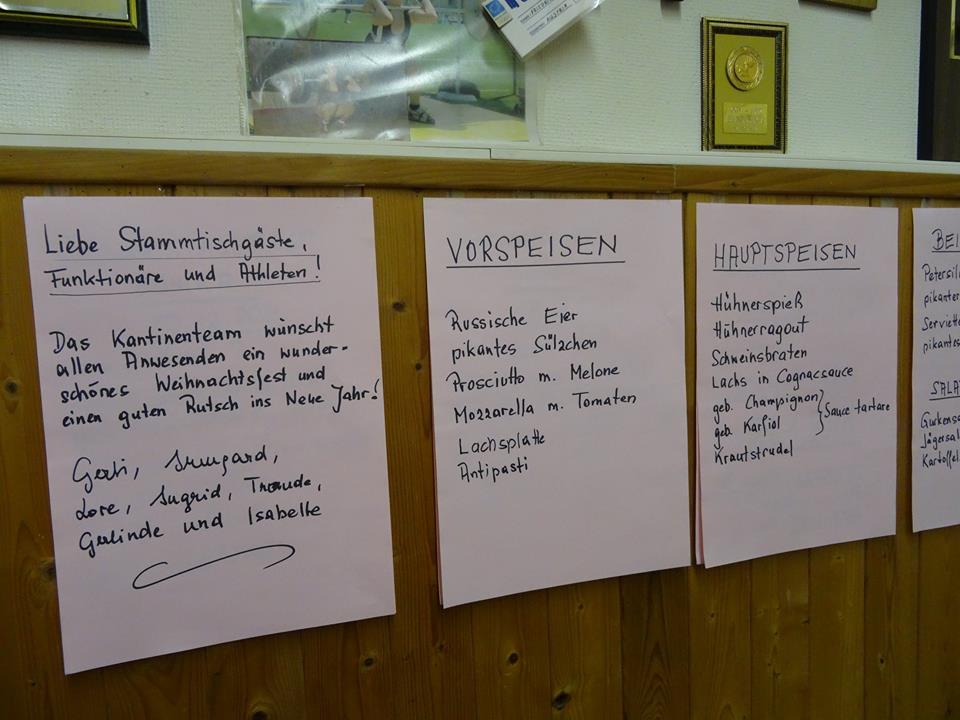 Liebe Stammtischgäste,
Funktionäre und Athleten!
Das Kantinenteam wünscht
allen Anwesenden ein wunder-
schönes Weihnachtsfest und
einen guten Rutsch ins Neue Jahr!
Gerti, Irmgard,
Lore, Ingrid, Traude,
Gerlinde und Isabelle
VORSPEISEN
Russische Eier
pikantes Sülzchen
Prosciutto m. Melone
Mozzarella m. Tomaten
Lachsplatte
Antipasti
HAUPTSPEISEN
Hühnerspieß
Hühnerragout
Schweinsbraten
Lachs in Cognacsauce
geb. Champignon
geb. Karfiol
Sauce tartare
Krautstrudel
BEI
Petersil
pikanter
Serviette
pikantes
SALA
Gurkensa
Jägersal
Kartoffel